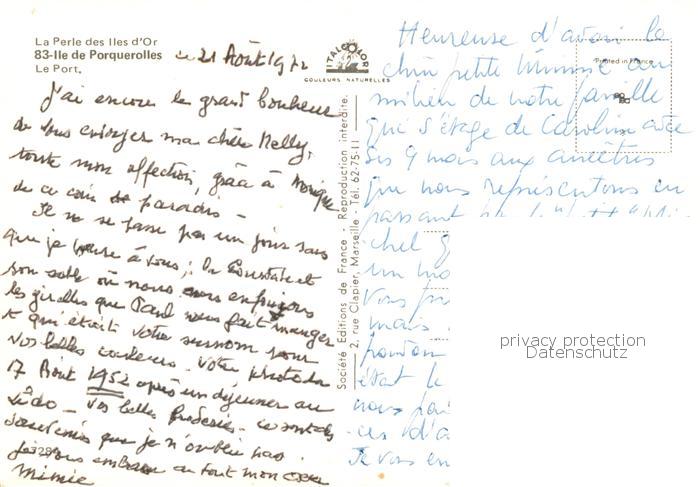 La Perle des Iles d'Or
83-Ile de Porquerolles
Le Port.
ce 21 Août 1972
J'ai encore le grand bonheur
de vous envoyer ma chère Nelly,
toute mon affection, grâce à Monique
de ce coin de paradis -
Je ne se passe pas un jour sans
que je pense à vous; la
son sable où nous nous enfouïons
les girelles que nous fait manger
et qui était votre surnom pour
vos belles couleurs. Votre photo du
17 Août 1952 après un déjeuner au
Lido - Vos belles broderies - ce sont des
souvenirs que je n'oublie pas.
Je vous embrasse de tout mon cœur
Mimie
ITALCOLOR
COULEURS NATURELLES
Société Editions de France - Reproduction interdite.
2, rue Clapier, Marseille - Tél. 62-75-11
Printed in France
Heureuse d'avoir la
chère petite Mimie au
milieu de notre famille
qui s'étage de Caroline avec
ses 9 mois aux ancêtres
que nous représentons en
passant
chel
un mo
Vous
mais
pendan
était le
nous
ces d'a
Je vous em
privacy protection
Datenschutz